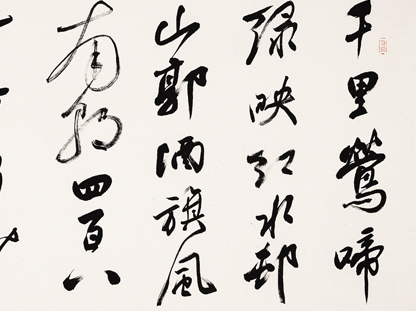 千里鶯啼
緑映紅水邨
山郭酒旗風
南朝四百八